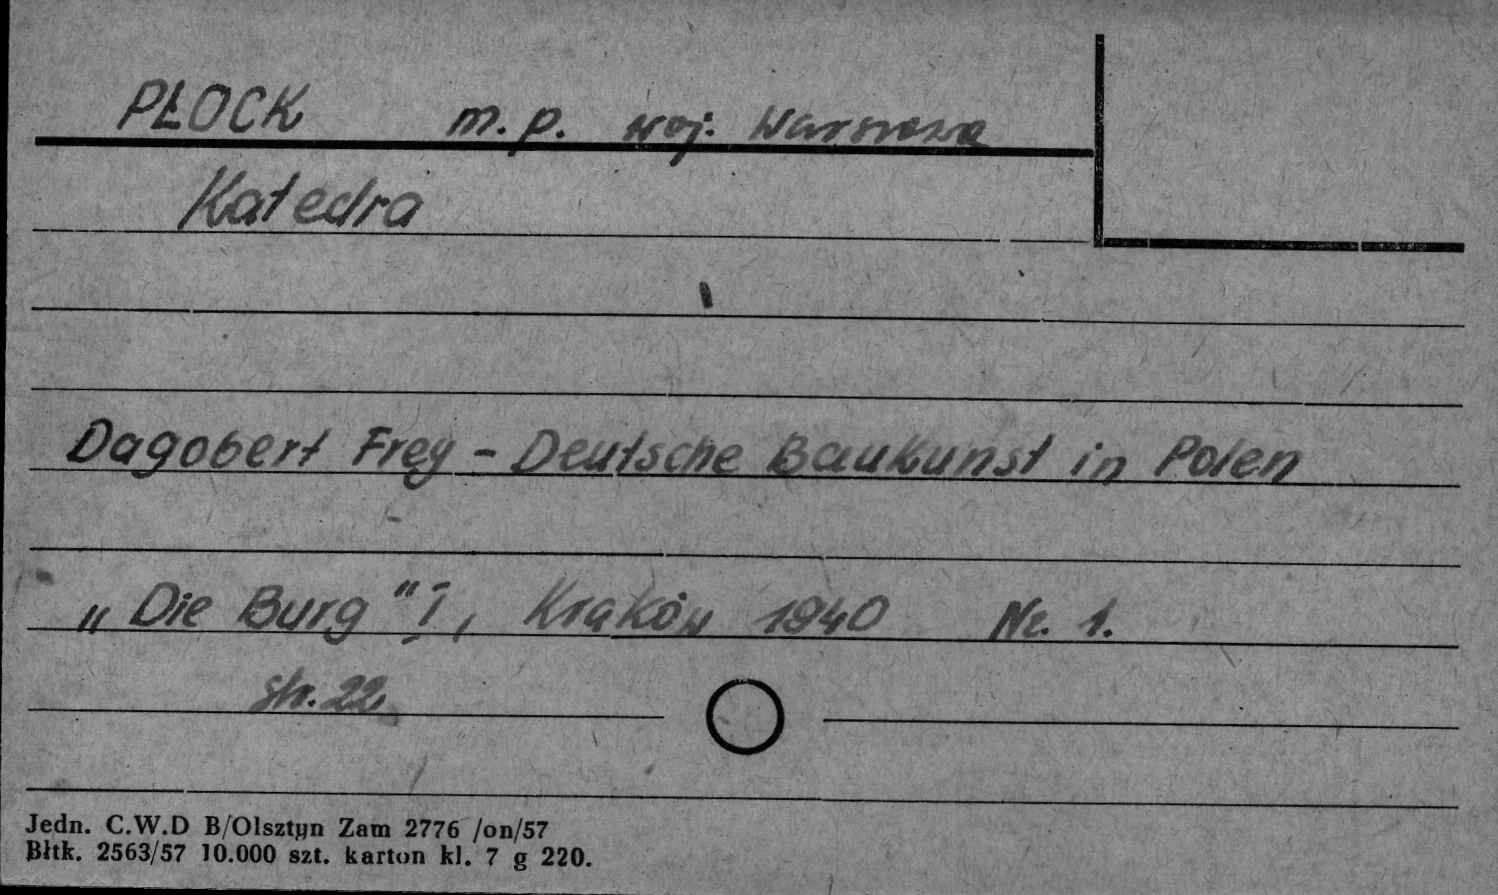 PŁOCK m. p. woj. Warszawa
Katedra
Dagobert Frey - Deutsche Baukunst in Polen
„Die Burg" I, Kraków 1940 Nr. 1.
str. 22
Jedn. C.W.D B/Olsztyn Zam 2776 /on/57
Błtk. 2563/57 10.000 szt. karton kl. 7 g 220.